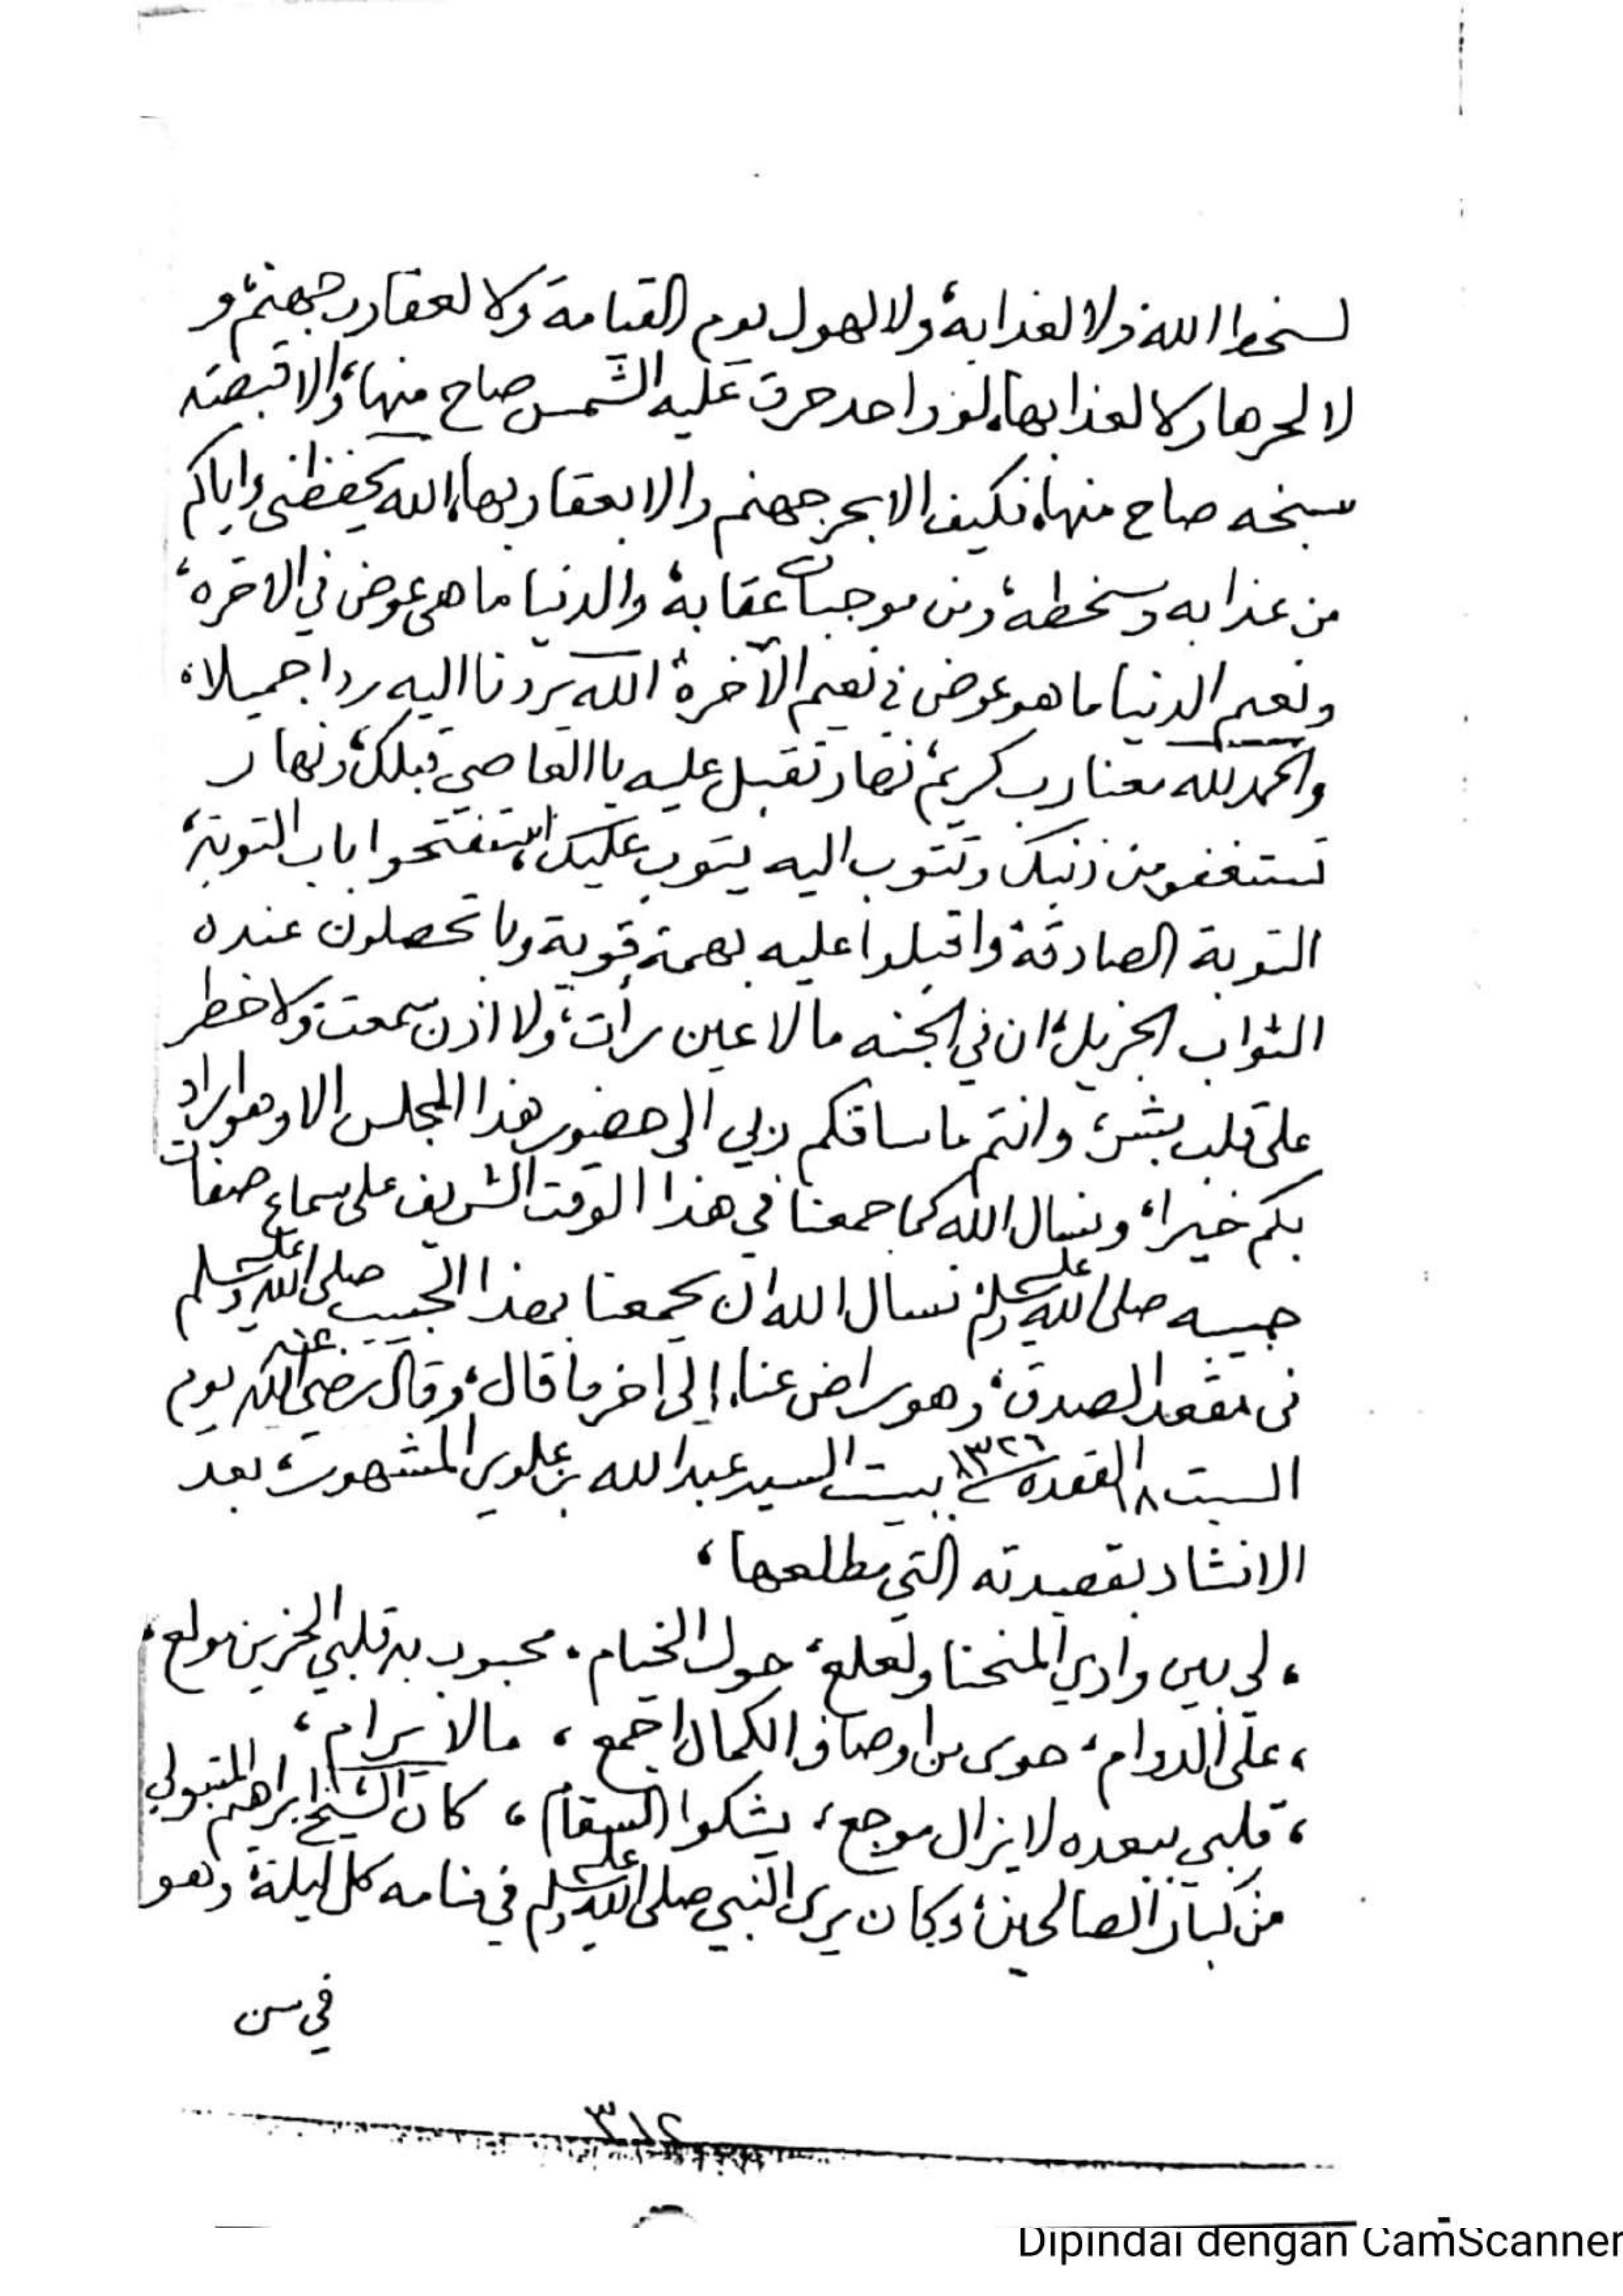 لسخط الله، ولا لعذابه، ولا لهول يوم القيامة، ولا لعقارب جهنم، و
لا لحرها ولا لعذابها، لو واحد حرق عليه الشمس صاح منها، والا قبصته
سخه صاح منها، فكيف الا بحر جهنم والا بعقاربها، الله يحفظني واياكم
من عذابه وسخطه، ومن موجبات عقابه، والدنيا ما هي عوض في الاخره،
ونعيم الدنيا ما هو عوض في نعيم الآخرة، الله يردنا اليه ردا جميلا،
والحمد لله معنا رب كريم، نهار تقبل عليه يا العاصي قبلك، ونهار
تستغفر من ذنبك وتتوب اليه يتوب عليك، استفتحوا باب التوبة،
التوبة الصادقة واقبلوا عليه بهمة قوية وبا تحصلون عنده
الثواب الجزيل، ان في الجنه ما لا عين رأت، ولا اذن سمعت، ولا خطر
على قلب بشر، وانتم ما ساقكم ربي الى حضور هذا المجلس الا وهو اراد
بكم خيرا، ونسال الله كما جمعنا في هذا الوقت الشريف على سماع صفات
حبيبه صلى الله عليه وسلم نسال الله ان يجمعنا بهذا الحبيب صلى الله عليه وسلم
في مقعد الصدق، وهو راض عنا، إلى اخر ما قال، وقال رضي الله عنه يوم
السبت ١٨ القعده سنة ١٣٢٦ ببيت السيد عبد الله بن علوي المشهور، بعد
الانشاد بقصيدته التي مطلعها،
، لي بين وادي المنحنا ولعلع، حول الخيام، محبوب به قلبي الحزين مولع،
، على الدوام، حوى من اوصاف الكمال اجمع، ما لا يرام،
، قلبي ببعده لا يزال موجع، يشكوا السقام، كان الشيخ ابراهيم المتبولي
من كبار الصالحين، وكان يرى النبي صلى الله عليه وسلم في منامه كل ليلة، وهو
في سن
٣١٢
Dipindai dengan CamScanner